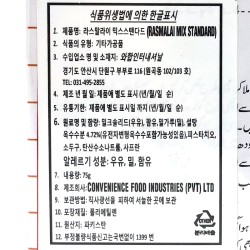 식품위생법에 의한 한글표시
1. 제품명: 라스말라이 믹스스탠다드 (RASMALAI MIX STANDARD)
2. 식품의 유형: 기타가공품
3. 수입업소 명 및 소재지: 와합인터내셔날
경기도 안산시 단원구 부부로 116 (원곡동 102/103 호)
TEL: 031-495-2855
4. 제조 년 월 일: 제품에 별도 표시 (년 월 일 까지)
5. 유통기한: 제품에 별도 표시 (년 월 일 까지)
6. 원료명 및 함량: 밀크솔리드(우유), 팜유,밀가루(밀), 설탕
옥수수분 4.72%(유전자변형옥수수포함가능성있음),피스타치오,
소두구, 탄산수소나트륨, 사프란
알레르기 성분: 우유, 밀, 함유
7. 용량: 75g
8. 제조회사: CONVENIENCE FOOD INDUSTRIES (PVT) LTD
9. 보관방법: 직사광선을 피하여 서늘한 곳에 보관
10. 포장재질: 폴리에틸렌
11. 원산지: 파키스탄
12. 부정불량식품신고는국번없이 1399 번